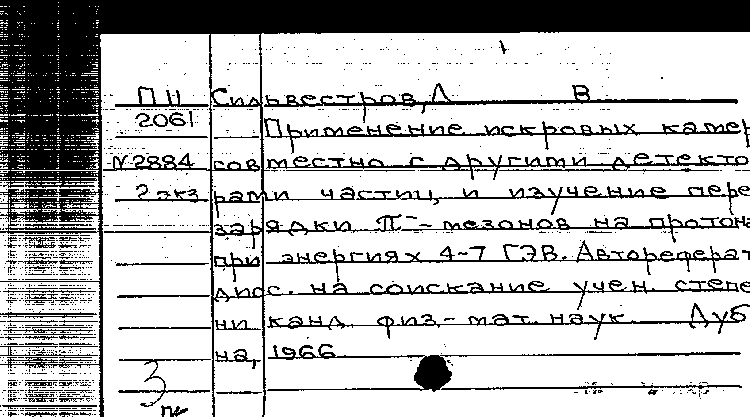 П II Сильвестров, Л В
2061 Применение искровых камер
N2884 совместно с другими детекто
2 экз рами частиц, и изучение пере
зарядки π⁻-мезонов на протона
при энергиях 4-7 ГЭВ. Автореферат
дисс. на соискание учен. степе
ни канд. физ.-мат. наук. Дуб
на, 1966
3